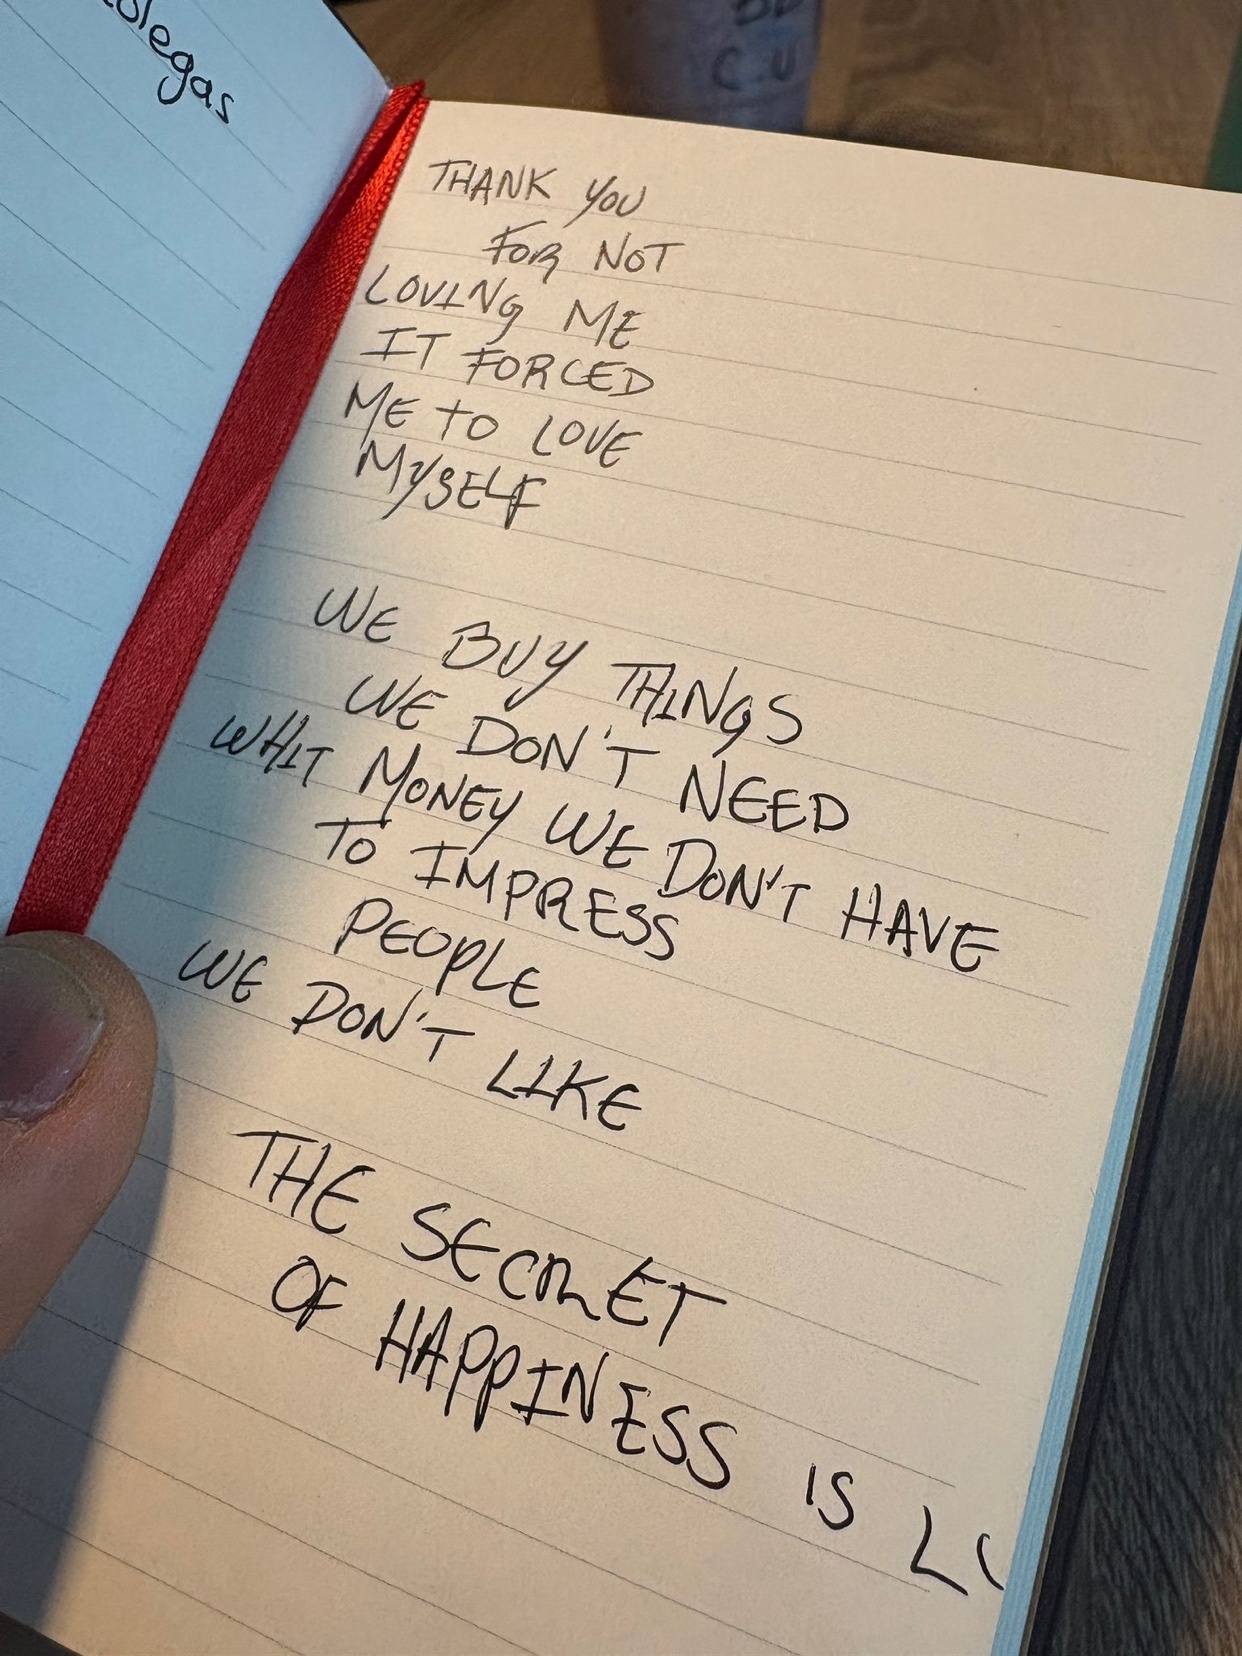 THANK YOU
FOR NOT
LOVING ME
IT FORCED
ME TO LOVE
MYSELF
WE BUY THINGS
WE DON'T NEED
WHIT MONEY WE DON'T HAVE
TO IMPRESS
PEOPLE
WE DON'T LIKE
THE SECRET
OF HAPPINESS IS